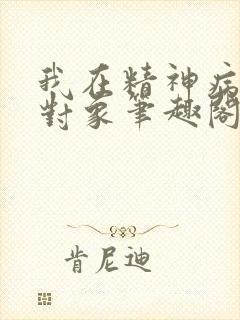 我在精神病
對象筆趣閣
肯尼迪